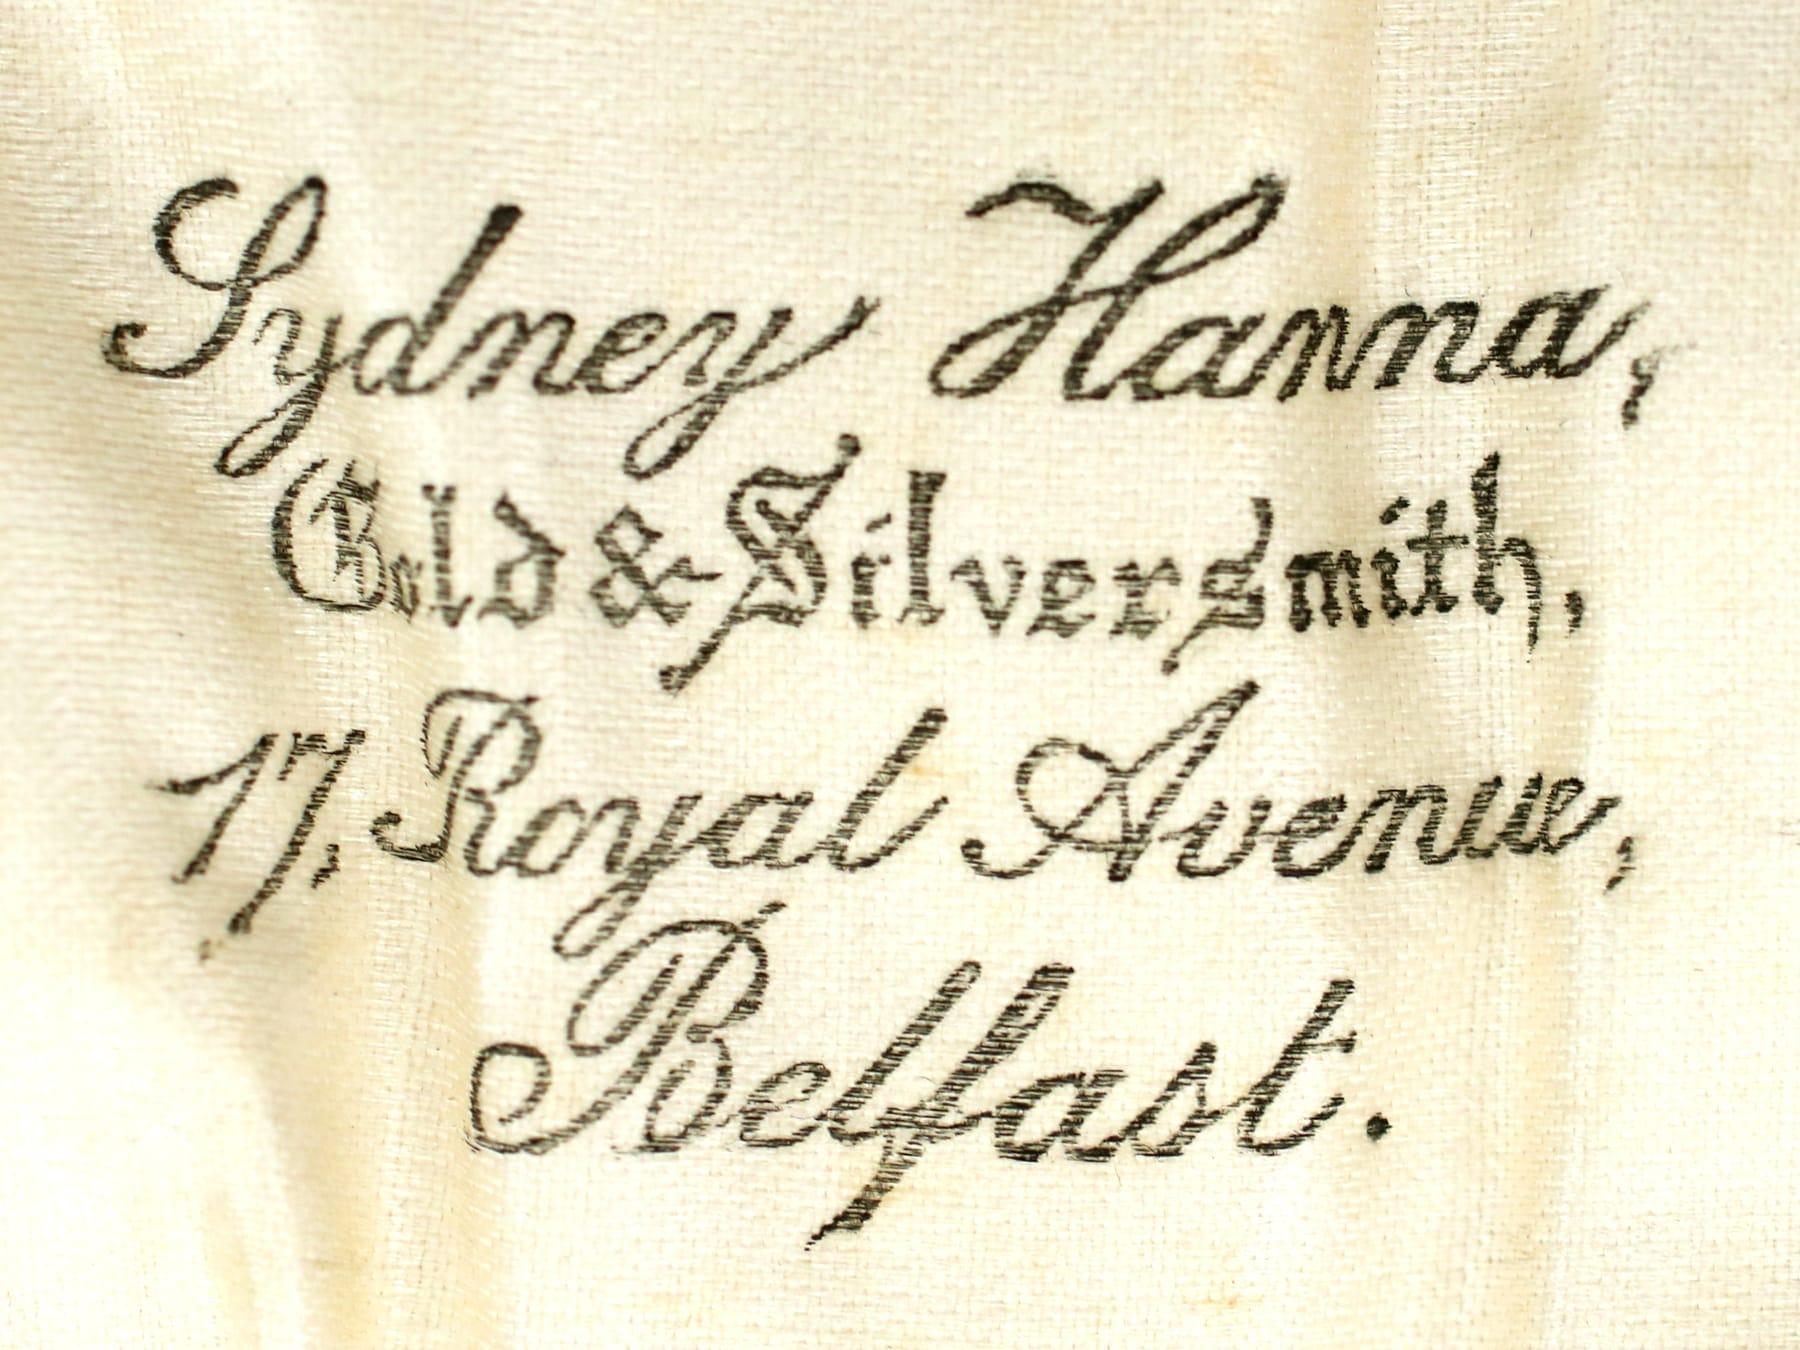 Sydney Hanna,
Gold & Silversmith,
17, Royal Avenue,
Belfast.